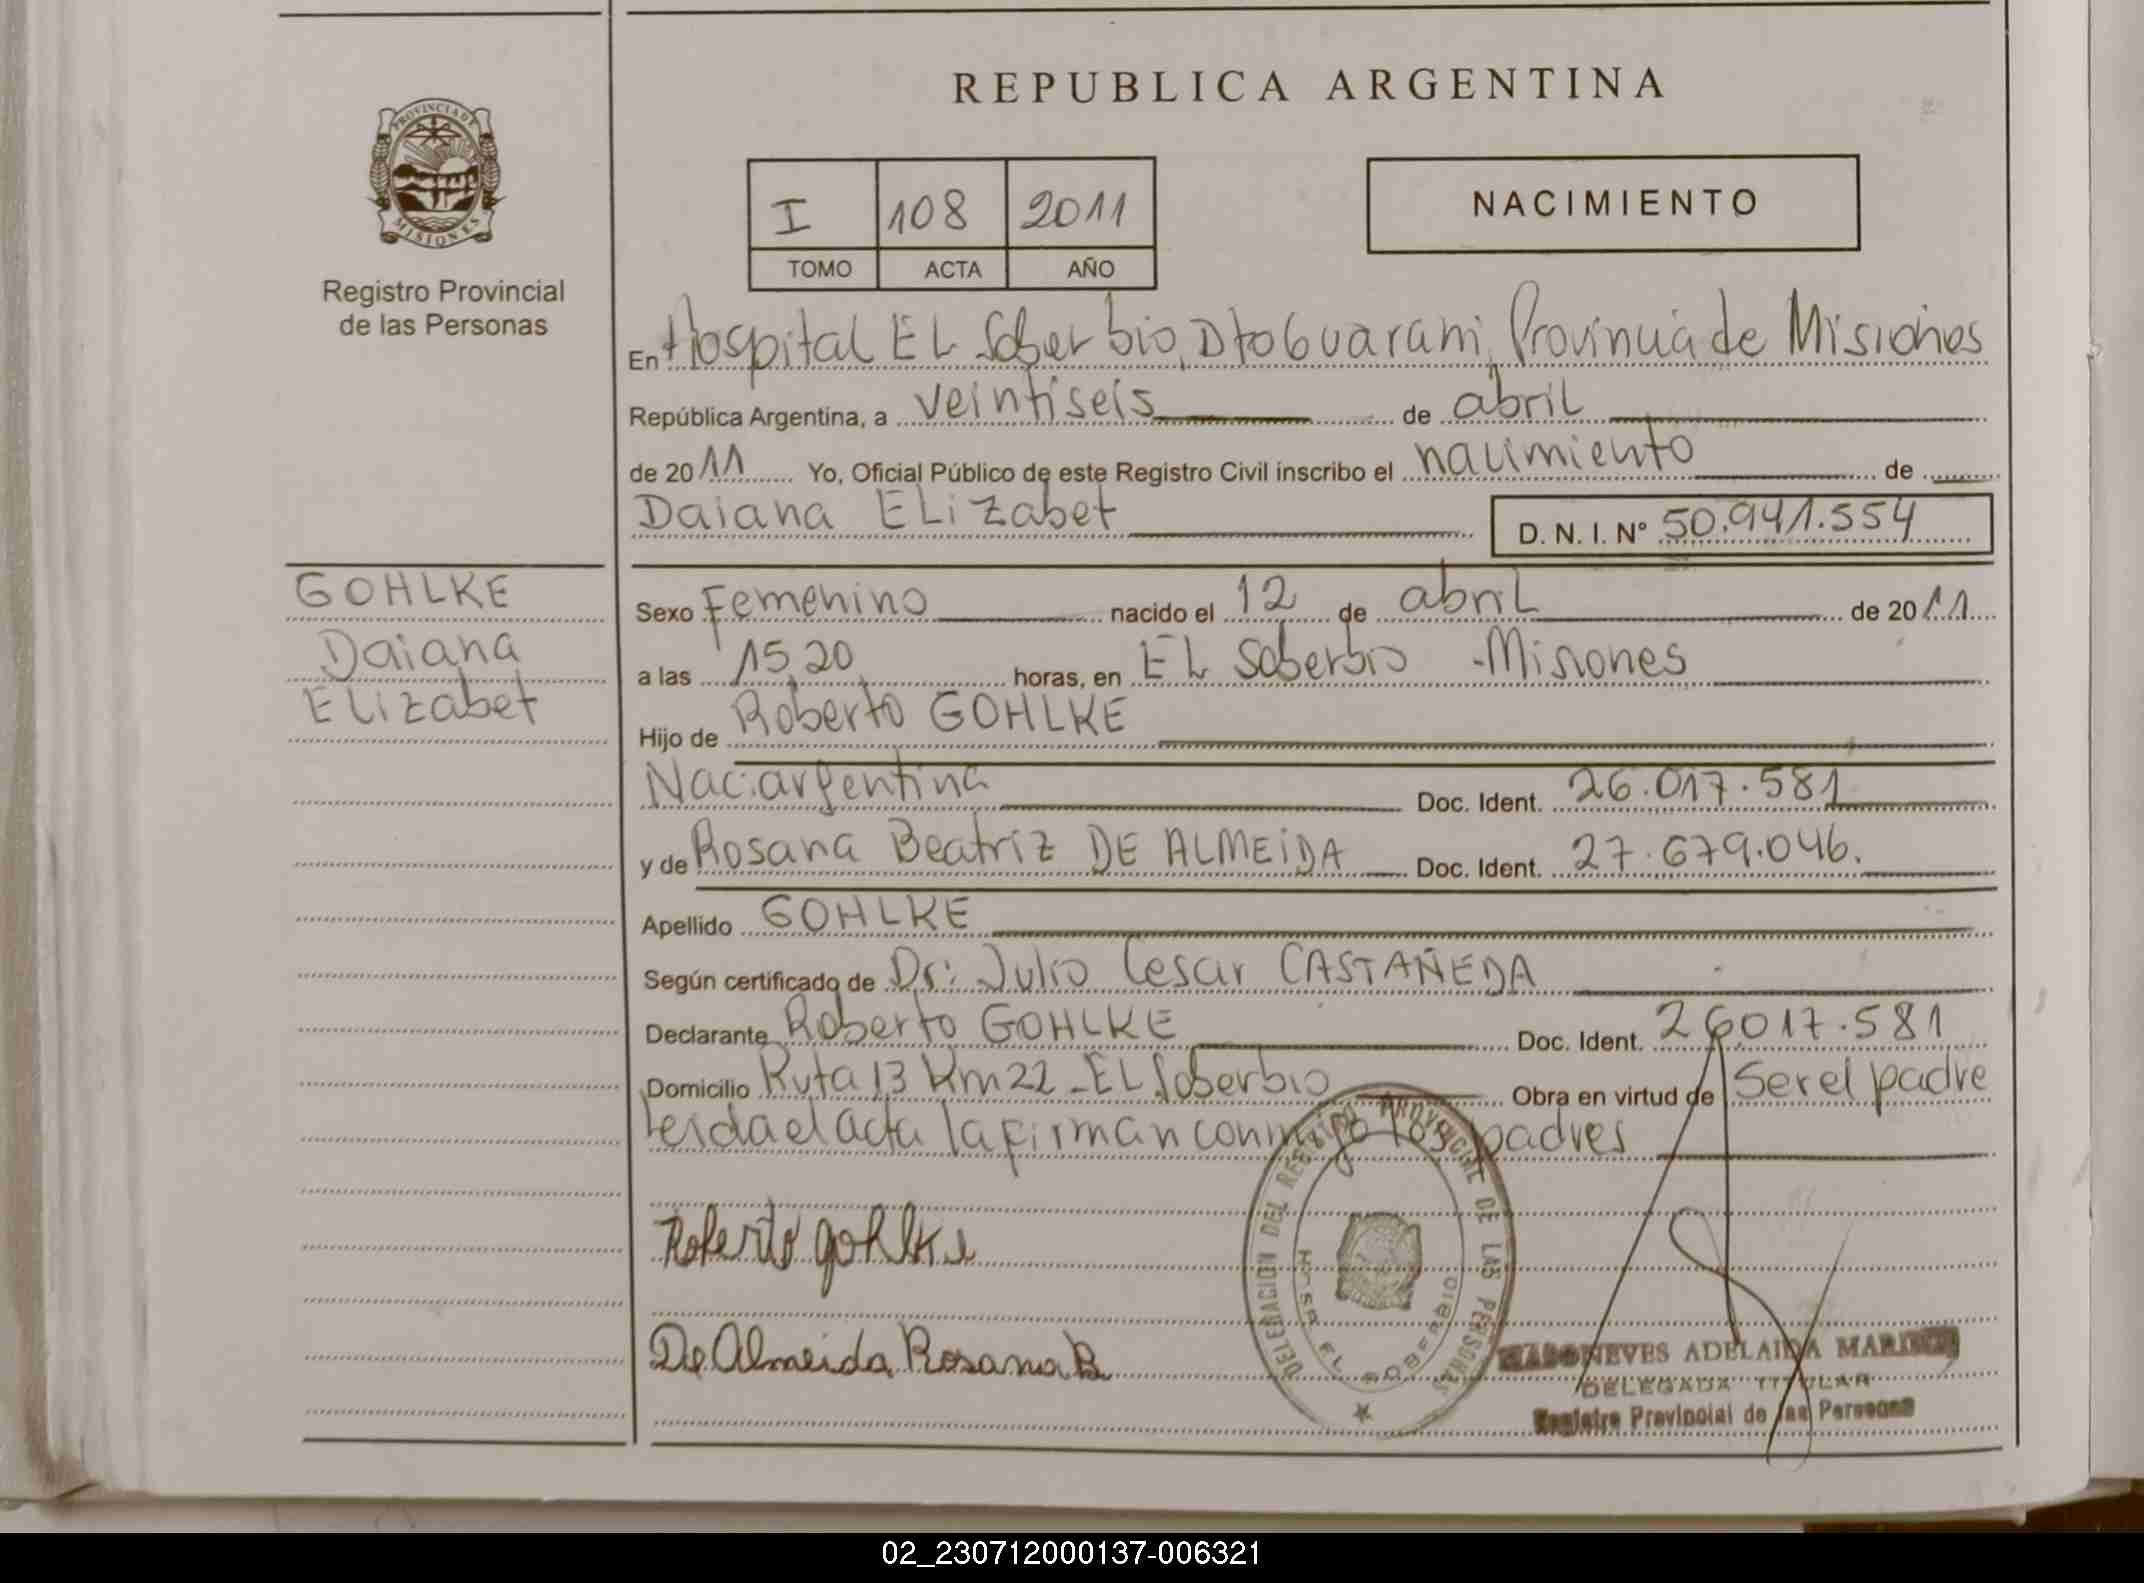 REPUBLICA ARGENTINA
PROVINCIA DE
MISIONES
Registro Provincial
de las Personas
I 108 2011
TOMO ACTA AÑO
NACIMIENTO
En Hospital EL Soberbio, Dto Guarani, Provincia de Misiones
República Argentina, a veintiseis de abril
de 2011 Yo, Oficial Público de este Registro Civil inscribo el nacimiento de
Daiana ELizabet D. N. I. Nº 50.941.554
GOHLKE
Daiana
ELizabet
Sexo Femenino nacido el 12 de abril de 2011
a las 15,20 horas, en EL Soberbio - Misiones
Hijo de Roberto GOHLKE
Nac: argentina Doc. Ident. 26.017.581
y de Rosana Beatriz DE ALMEIDA Doc. Ident. 27.679.046.
Apellido GOHLKE
Según certificado de Dr: Julio Cesar CASTAÑEDA
Declarante Roberto GOHLKE Doc. Ident. 26.017.581
Domicilio Ruta 13 Km 22 - EL Soberbio Obra en virtud de Ser el padre
Leida el acta la firman conmigo los padres
Roberto gohlke
De Almeida Rosana B
DELEGACION DEL REGISTRO PROVINCIAL DE LAS PERSONAS
EL SOBERBIO
NEVES ADELAIDA
DELEGADA TITULAR
Registro Provincial de las Personas
02_230712000137-006321